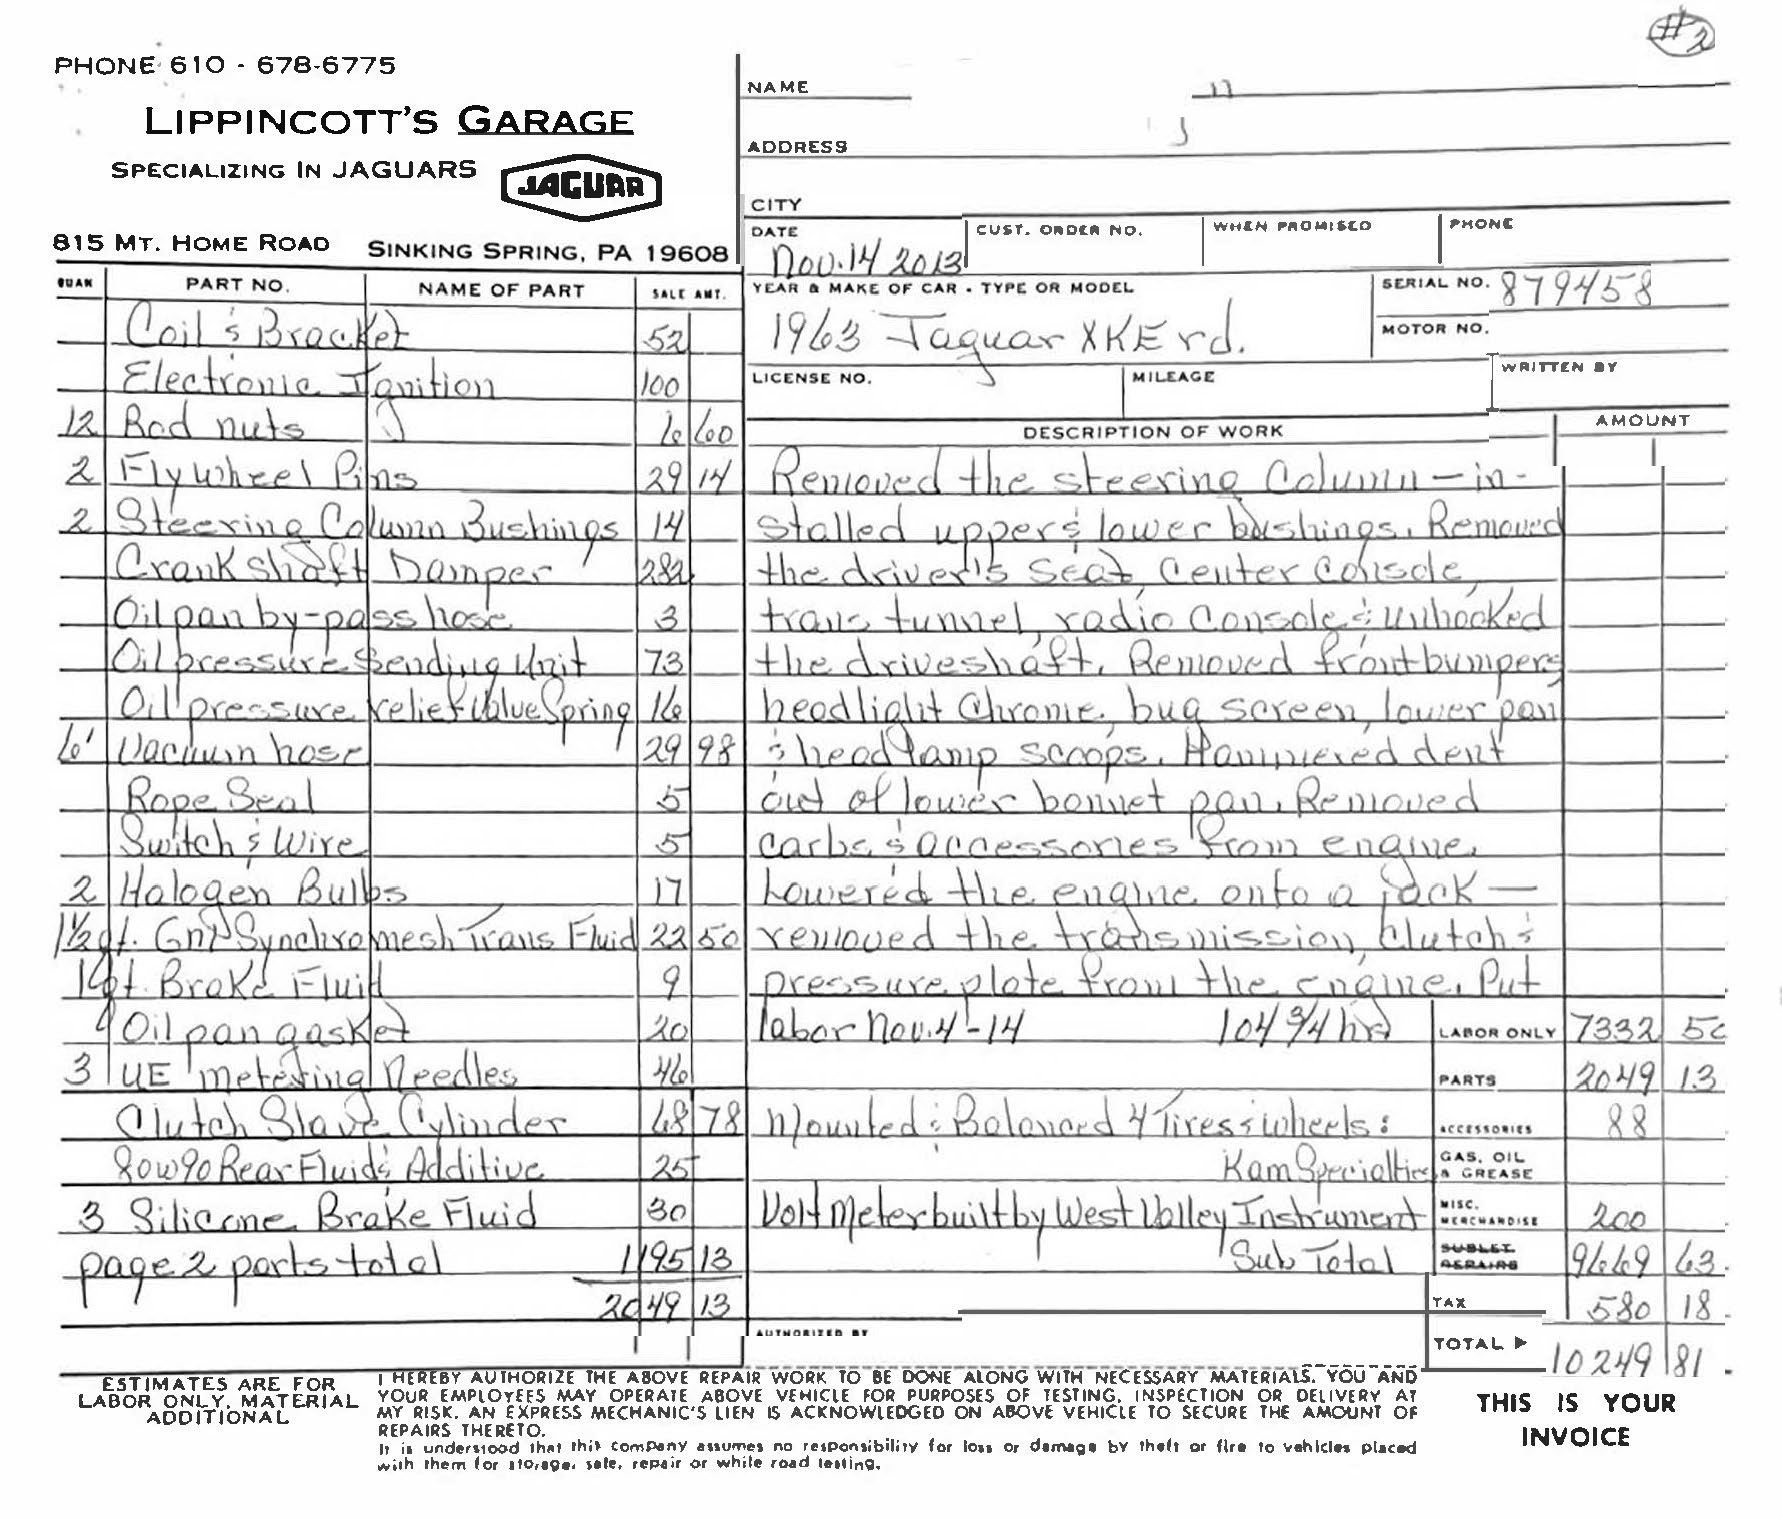 #2
PHONE 610 - 678-6775
LIPPINCOTT'S GARAGE
SPECIALIZING IN JAGUARS
JAGUAR
815 MT. HOME ROAD SINKING SPRING, PA 19608
NAME
ADDRESS
CITY
DATE CUST. ORDER NO. WHEN PROMISED PHONE
Nov. 14 2013
YEAR & MAKE OF CAR - TYPE OR MODEL SERIAL NO. 879458
1963 Jaguar XKE rd. MOTOR NO.
LICENSE NO. MILEAGE WRITTEN BY
QUAN PART NO. NAME OF PART SALE AMT.
Coil & Bracket 52
Electronic Ignition 100
12 Rod nuts 6 60
2 Flywheel Pins 29 14
2 Steering Column Bushings 14
Crankshaft Damper 282
Oil pan by-pass hose 3
Oil pressure Sending Unit 73
Oil pressure relief Valve Spring 16
6' Vacuum hose 29 98
Rope Seal 5
Switch & Wire 5
2 Halogen Bulbs 17
1 1/2 qt. GM Synchromesh Trans Fluid 22 50
1 qt. Brake Fluid 9
Oil pan gasket 20
3 UE metering Needles 46
Clutch Slave Cylinder 68 78
80w90 Rear Fluid & Additive 25
3 Silicone Brake Fluid 30
page 2 parts total 1195 13
2049 13
DESCRIPTION OF WORK AMOUNT
Removed the steering Column - in-
stalled upper & lower bushings. Removed
the driver's seat, Center Console,
trans tunnel, radio Console & unhooked
the driveshaft. Removed front bumpers
headlight Chrome, bug screen, lower pan
& headlamp scoops. Hammered dent
out of lower bonnet pan. Removed
carbs & accessories from engine.
Lowered the engine onto a jack -
removed the transmission, Clutch &
pressure plate from the engine. Put
labor Nov. 4-14 104 3/4 hrs LABOR ONLY 7332 50
PARTS 2049 13
Mounted & Balanced 4 Tires & Wheels: ACCESSORIES 88
Kam Specialties GAS, OIL & GREASE
Volt Meter built by West Valley Instrument MISC. MERCHANDISE 200
Sub Total SUBLET REPAIRS 9669 63
TAX 580 18
AUTHORIZED BY
TOTAL 10249 81
ESTIMATES ARE FOR
LABOR ONLY, MATERIAL
ADDITIONAL
I HEREBY AUTHORIZE THE ABOVE REPAIR WORK TO BE DONE ALONG WITH NECESSARY MATERIALS. YOU AND
YOUR EMPLOYEES MAY OPERATE ABOVE VEHICLE FOR PURPOSES OF TESTING, INSPECTION OR DELIVERY AT
MY RISK. AN EXPRESS MECHANIC'S LIEN IS ACKNOWLEDGED ON ABOVE VEHICLE TO SECURE THE AMOUNT OF
REPAIRS THERETO.
It is understood that this company assumes no responsibility for loss or damage by theft or fire to vehicles placed
with them for storage, sale, repair or while road testing.
THIS IS YOUR
INVOICE